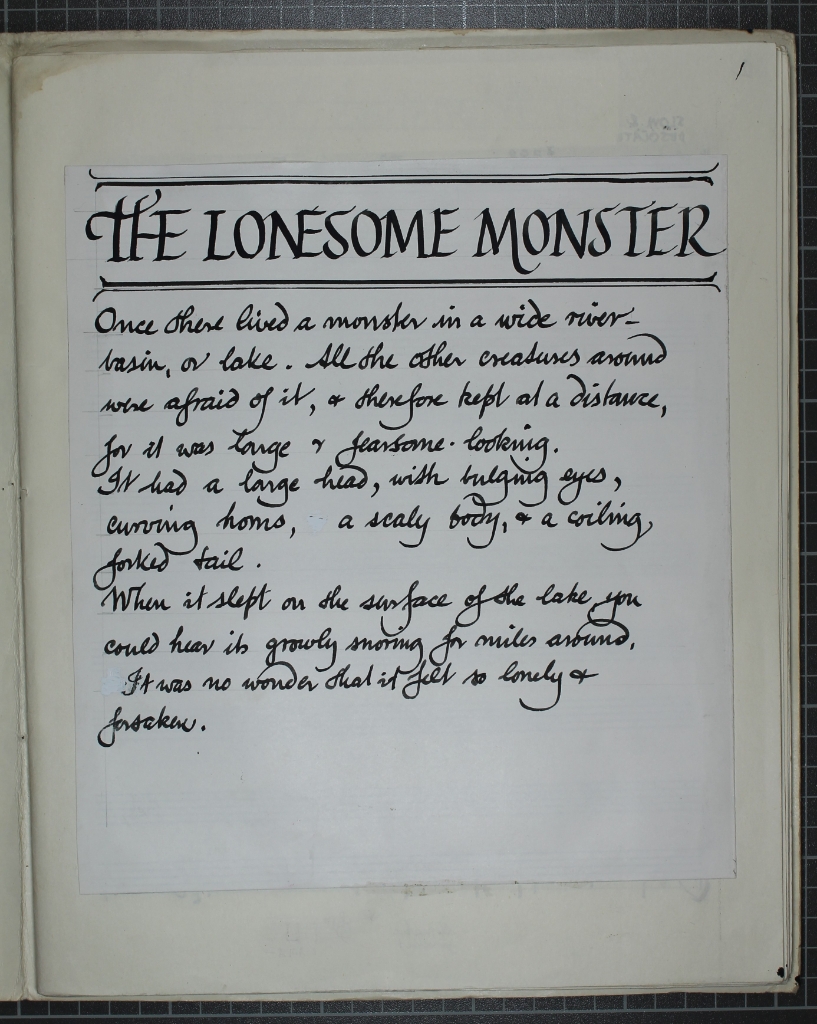 1
THE LONESOME MONSTER
Once there lived a monster in a wide river-
basin, or lake. All the other creatures around
were afraid of it, & therefore kept at a distance,
for it was large & fearsome-looking.
It had a large head, with bulging eyes,
curving horns, a scaly body, & a coiling,
forked tail.
When it slept on the surface of the lake, you
could hear its growly snoring for miles around.
It was no wonder that it felt so lonely &
forsaken.